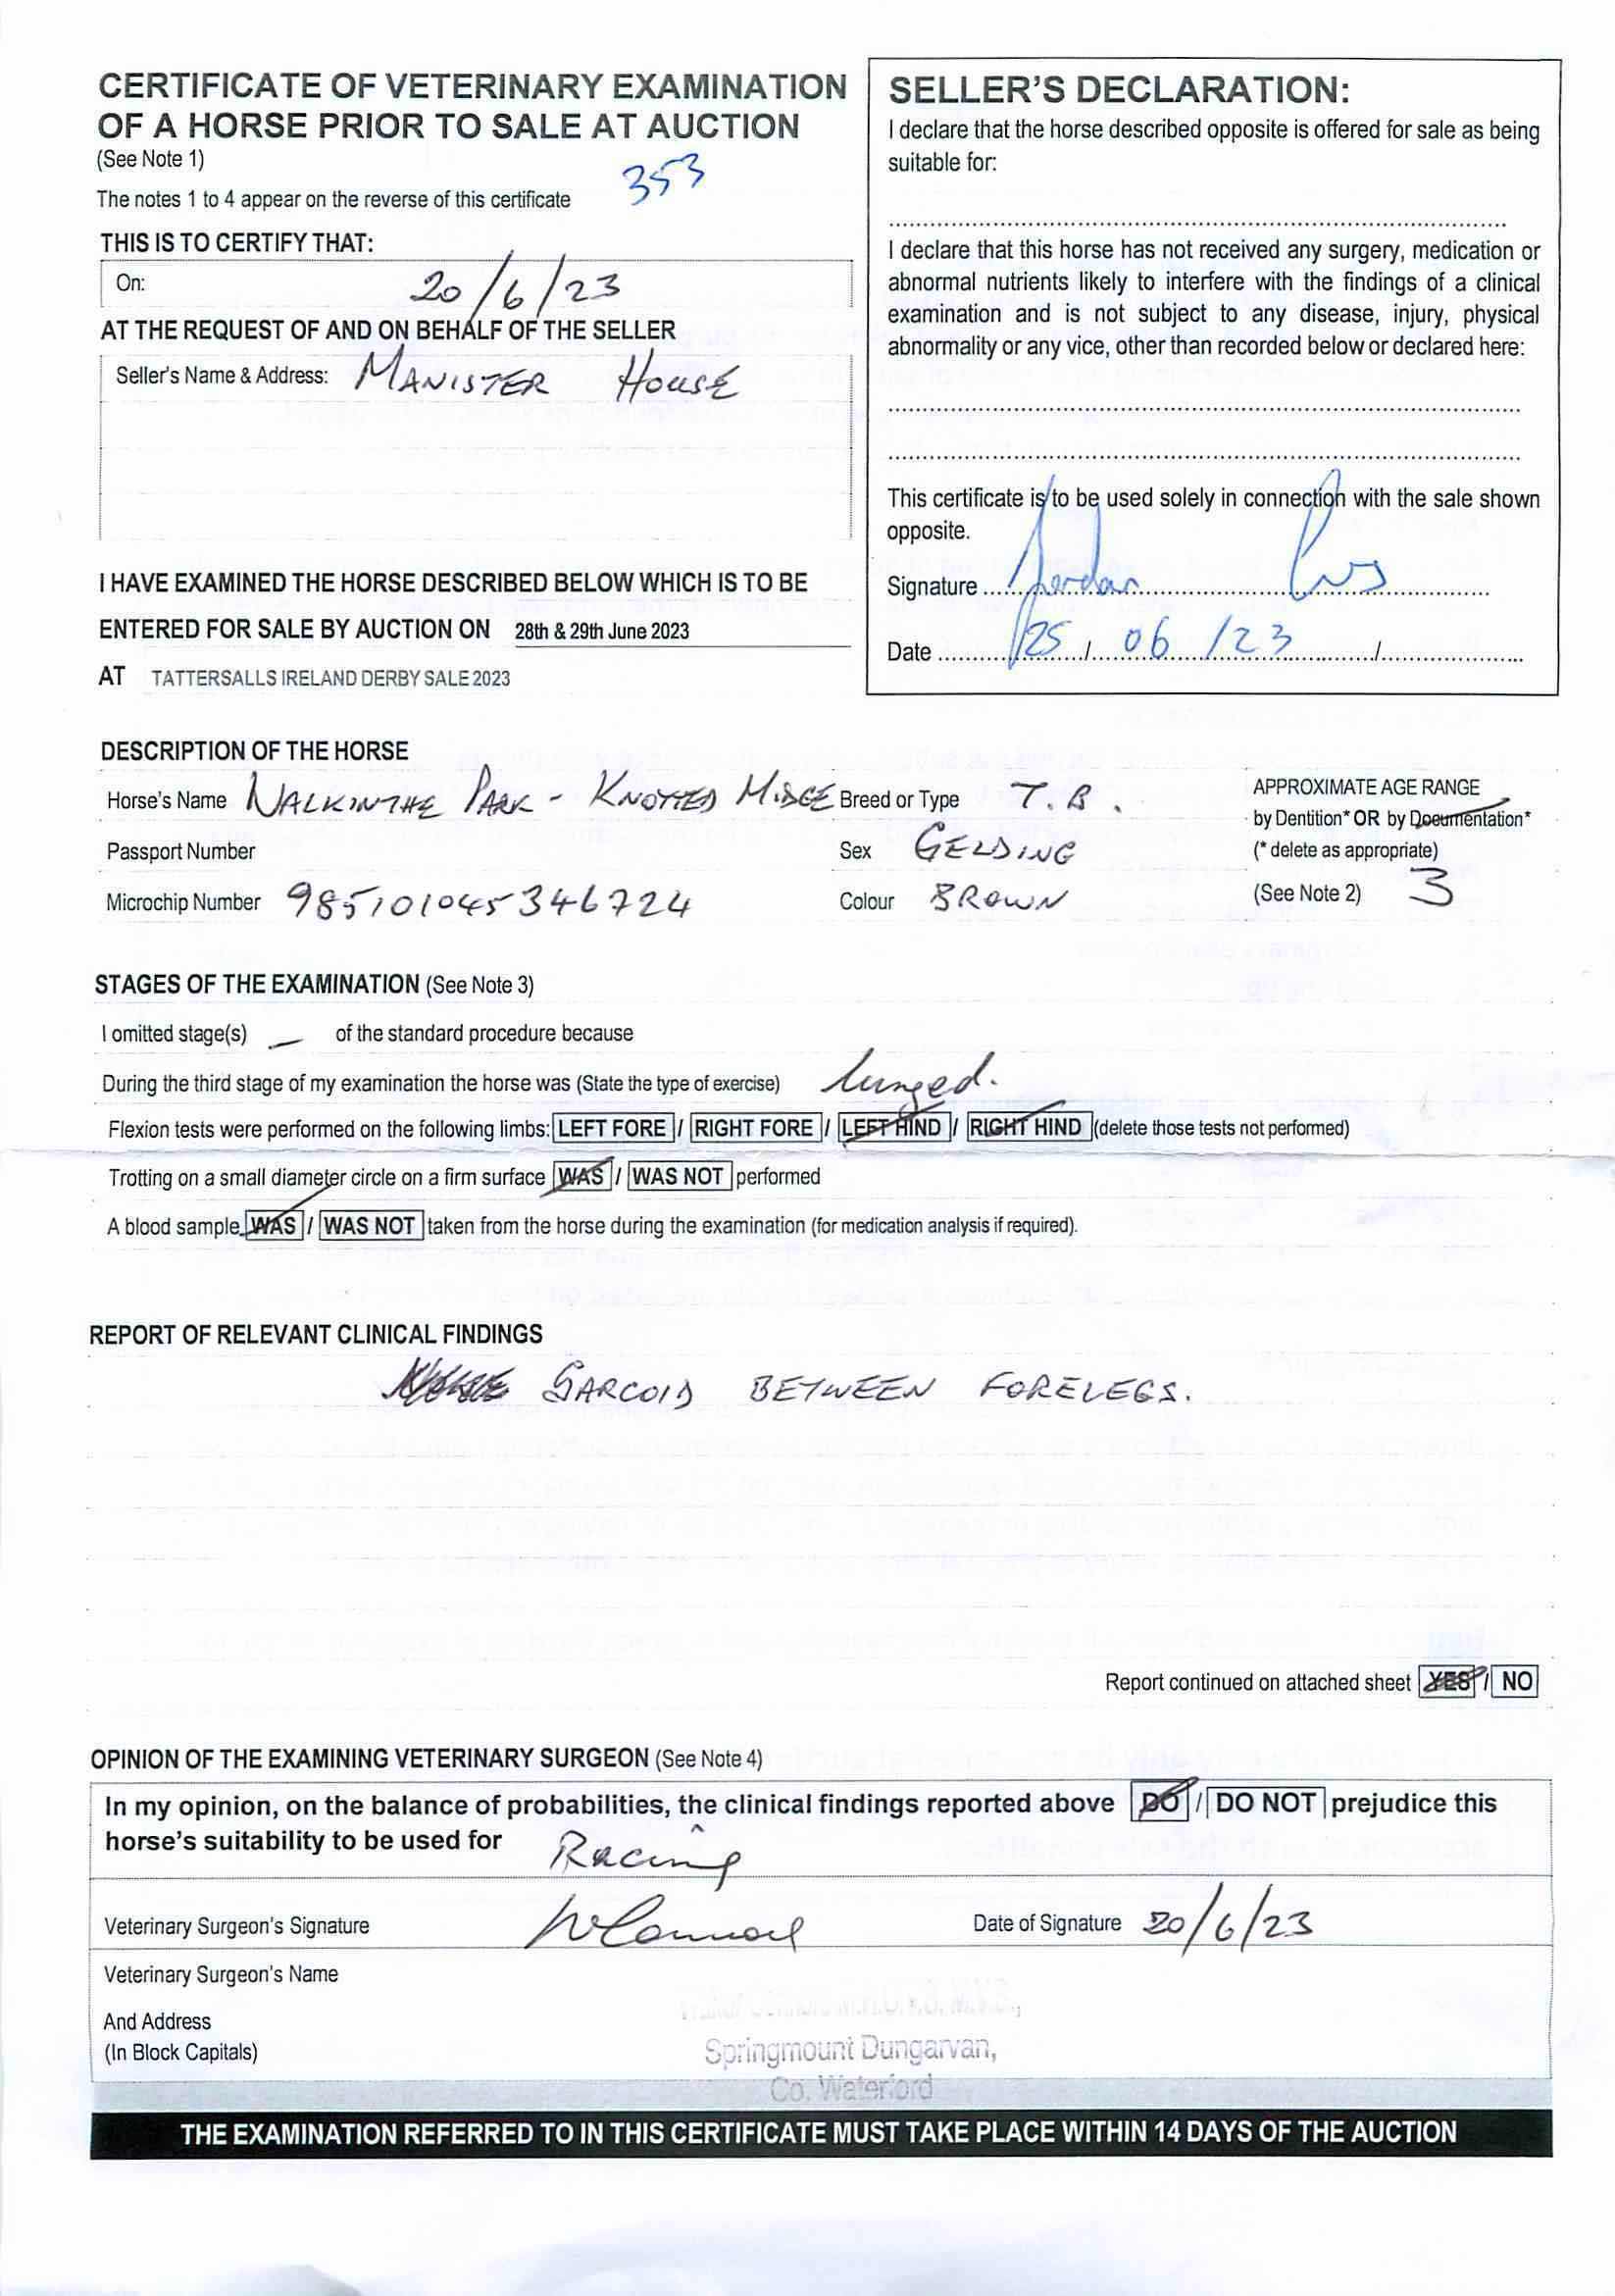 CERTIFICATE OF VETERINARY EXAMINATION
OF A HORSE PRIOR TO SALE AT AUCTION
(See Note 1)
353
The notes 1 to 4 appear on the reverse of this certificate
THIS IS TO CERTIFY THAT:
On: 20/6/23
AT THE REQUEST OF AND ON BEHALF OF THE SELLER
Seller's Name & Address: MANISTER HOUSE
I HAVE EXAMINED THE HORSE DESCRIBED BELOW WHICH IS TO BE
ENTERED FOR SALE BY AUCTION ON 28th & 29th June 2023
AT TATTERSALLS IRELAND DERBY SALE 2023
SELLER'S DECLARATION:
I declare that the horse described opposite is offered for sale as being
suitable for:
I declare that this horse has not received any surgery, medication or
abnormal nutrients likely to interfere with the findings of a clinical
examination and is not subject to any disease, injury, physical
abnormality or any vice, other than recorded below or declared here:
This certificate is to be used solely in connection with the sale shown
opposite.
Signature
Date 25/06/23
DESCRIPTION OF THE HORSE
Horse's Name WALKINTHE PARK - KNOTTED MIDGE Breed or Type T.B. APPROXIMATE AGE RANGE
by Dentition* OR by Documentation*
Passport Number Sex GELDING (* delete as appropriate)
Microchip Number 985101045346724 Colour BROWN (See Note 2) 3
STAGES OF THE EXAMINATION (See Note 3)
I omitted stage(s) — of the standard procedure because
During the third stage of my examination the horse was (State the type of exercise) lunged.
Flexion tests were performed on the following limbs: LEFT FORE / RIGHT FORE / LEFT HIND / RIGHT HIND (delete those tests not performed)
Trotting on a small diameter circle on a firm surface WAS / WAS NOT performed
A blood sample WAS / WAS NOT taken from the horse during the examination (for medication analysis if required).
REPORT OF RELEVANT CLINICAL FINDINGS
SARCOID BETWEEN FORELEGS.
Report continued on attached sheet YES / NO
OPINION OF THE EXAMINING VETERINARY SURGEON (See Note 4)
In my opinion, on the balance of probabilities, the clinical findings reported above DO / DO NOT prejudice this
horse's suitability to be used for Racing
Veterinary Surgeon's Signature Date of Signature 20/6/23
Veterinary Surgeon's Name
And Address
(In Block Capitals)
Springmount Dungarvan,
Co. Waterford
THE EXAMINATION REFERRED TO IN THIS CERTIFICATE MUST TAKE PLACE WITHIN 14 DAYS OF THE AUCTION